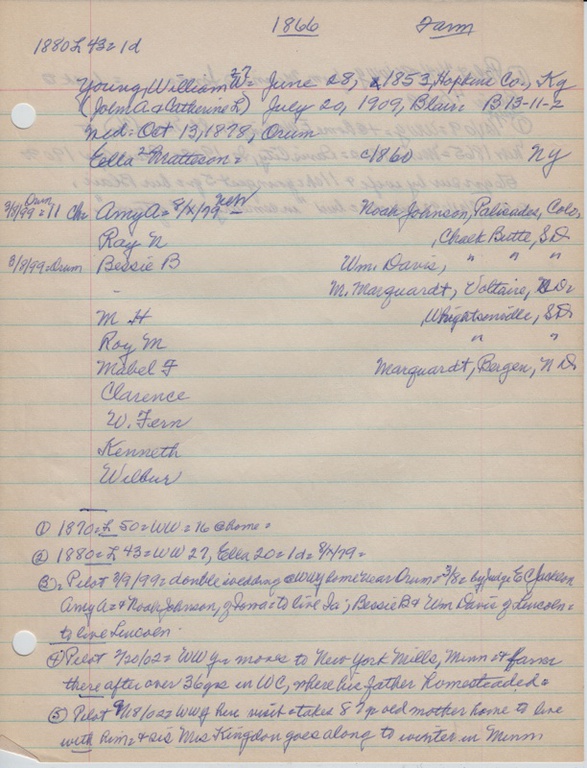 1866 Farm
1880 L 43 = 1d
Young, William W = June 28, 1853, Hopkins Co., Ky
(John A & Catherine L) July 20, 1909, Blair B 13-11-2
Md = Oct 13, 1878, Orum
Ella Matteson = c1860 NY
3/8/99 = Orum 11 Chr Amy A = 8/x/79 Neb Noah Johnson, Palisades, Colo,
Ray N , Chalk Butte, S D
3/8/99 = Orum Bessie B Wm. Davis, " " "
- M. Marquardt, Voltaire, N D
M H , Wrightsville, S D
Roy M " "
Mabel F Marquardt, Bergen, N D
Clarence
W. Fern
Kenneth
Wilbur
① 1870 = L 50 = WW = 16 @ home =
② 1880 = L 43 = WW 27, Ella 20 = 1d = 8/x/79 =
③ = Pilot 3/9/99 = double wedding @ WWY home near Orum = 3/8 = by Judge E C Jackson
Amy A = & Noah Johnson, of Iowa = to live Ia; Bessie B & Wm Davis of Lincoln =
to live Lincoln.
④ Pilot /20/02 = WW Y = moves to New York Mills, Minn = & farm
there after over 36 yrs in WC, where his father homesteaded =
⑤ Pilot /18/02 = WW Y here visit & takes 87 y old mother home to live
with him = & sis Mrs Kingdon goes along to winter in Minn